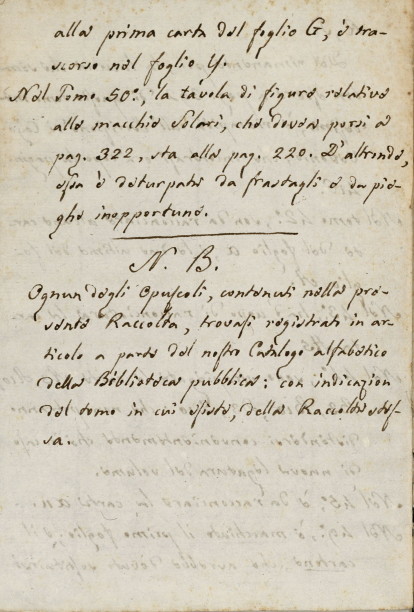 alla prima carta del foglio G, è tra-
scorso nel foglio Y.
Nel Tomo 50º, la tavola di figure relative
alle macchie Solari, che dovea porsi a
pag. 322, sta alla pag. 220. D'altronde,
essa è deturpata da frastagli e da pie-
ghe inopportune.
N. B.
Ognun degli Opuscoli, contenuti nella pre-
sente Raccolta, trovasi registrato in ar-
ticolo a parte del nostro Catalogo alfabetico
della Biblioteca pubblica: con indicazion
del tomo in cui esiste, della Raccolta stes-
sa.